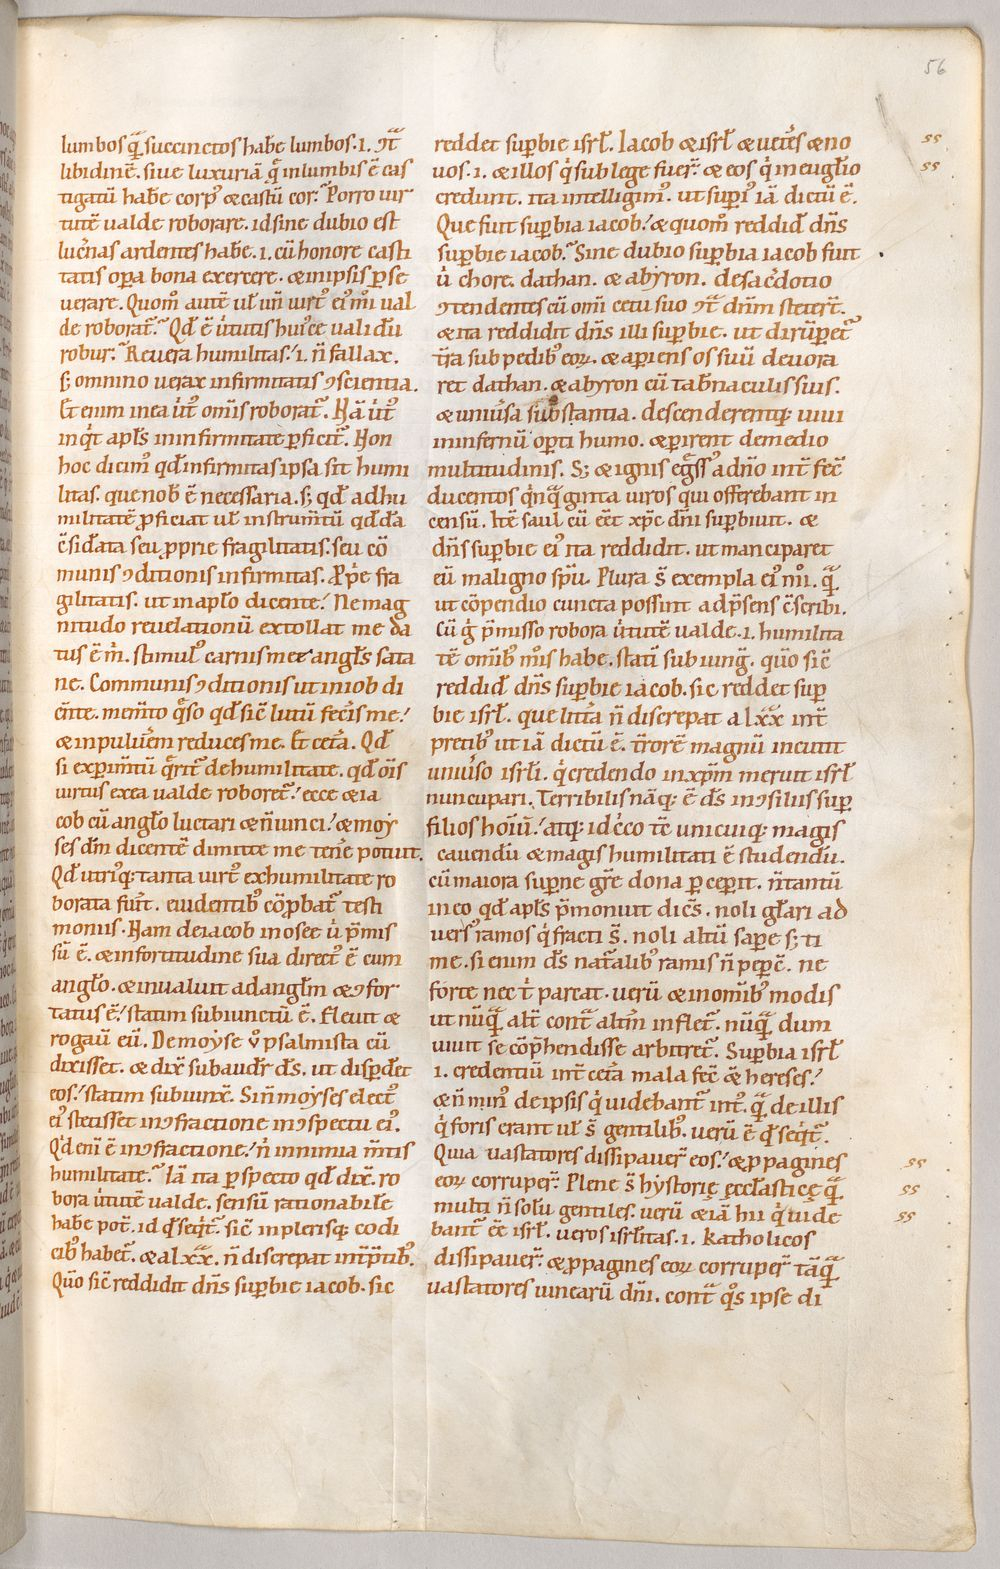 56
lumbos qua̅ succinctos habe̅ lumbos .i. ꝯt̅
libidine̅. siue luxuria̅ q̅ in lumbis e̅ cas
tigatu̅ habe̅ corp᷒ ⁊ castu̅ cor? Porro uir
tute̅ ualde roborare. id sine dubio est
luc̅nas ardentes habe̅ .i. cu̅ honore casti
tatis op̅a bona exercere. ⁊ in ipsis p̱se
uerare. Quom̅ aute̅ ul̅ un̅ uirt᷒ ei᷒ m̊i ual
de roborat᷒? Qd̅ e̅ u̇tutis hui᷒ce ualidu̅
robur? Reuera humilitas! .i. n̅ fallax.
s; omnino uerax infirmitatis ꝯscientia.
Et enim in ea u̇t᷒ om̅is roborat᷒. Na̅ u̇t᷒
inqͥt apl̅s in infirmitate p̱ficit᷒. Non
hoc dicim᷒ qd̅ infirmitas ipsa sit humi
litas. que nob̅ e̅ necessaria. s; qd̅ ad hu
militate̅ ꝓficiat ul̅ instrum̅tu̅ qd̅da̅
c̅sid̅ata seu ꝓprie fragilitatis. seu co̅
munis ꝯditionis infirmitas. Ꝓp̅e fra
gilitatis. ut in apl̅o dicente! Ne mag
nitudo reuelationu̅ extollat me da
tus e̅ m̊. stimul᷒ carnis meę angl̅s sata
ne. Communis ꝯditionis ut in iob di
c̅nte. mem̅to q̅so qd̅ sic̅ lutu̅ fec̅is me!
⁊ in pulu̅em reduces me. Et cet̅a. Qd̅
si experim̅tu̅ q̅rit᷒ de humilitate. qd̅ om̅s
uirtus ex ea ualde roboret᷒! ecce ⁊ ia
cob cu̅ angl̅o luctari ⁊ n̅ uinci! ⁊ moy
ses dm̅ dicente̅ dimitte me ten̅e potuit.
Qd̅ utri᷒q; tanta uirt᷒ ex humilitate ro
borata fu̅t. euidentib᷒ co̅p̱bat᷒ testi
moniis. Nam de iacob in osee u̇ p̅mis
su̅ e̅. ⁊ in fortitudine sua direct᷒ e̅ cum
angl̅o. ⁊ inualuit ad angl̅m ⁊ ꝯfor
tatus e̅! statim subiunctu̅ e̅. Fleuit ⁊
rogau̅ eu̅. De moyse v̊ psalmista cu̅
dixisset. ⁊ dix̅ subaudr̅ ds̅. ut disp̱d̅et
eos! statim subiunx̅. Si n̅ moyses elect᷒
ei᷒ stetisset in ꝯfractione in ꝯspectu ei᷒.
Qd̅ eni̅ e̅ in ꝯfractione! nͥ in nimia m̅tis
humilitate? Ia̅ ita p̱specto qd̅ dix̅. ro
bora u̇tute̅ ualde. sensu̅ rationabile̅
habe pot᷒. id qd̅ seqͥt᷒. sic̅ in plerisq; codi
cib᷒ habet᷒. ⁊ a lxx. n̅ discrepat int̅p̱tib᷒.
Qu̅o sic̅ reddidit dn̅s sup̱bie iacob. sic
reddet sup̱bie isrl̅. Iacob ⁊ isrl̅ ⁊ uet̅es ⁊ no
uos .i. ⁊ illos qͥ sub lege fuer̅. ⁊ eos qͥ in eugl̅io
credunt. ita intelligim᷒. ut sup̱i᷒ ia̅ dictu̅ e̅.
Que fuit sup̱bia iacob! ⁊ quom̅ reddid̅ dn̅s
sup̱bie iacob? Sine dubio sup̱bia iacob fuit
u̇ chore. dathan. ⁊ abyron. de sac̅dotio
ꝯtendentes cu̅ om̅i cetu suo ꝯt̅ dn̅m steter̅t.
⁊ ita reddidit dn̅s illi sup̱bie. ut diru̅p̱et᷒
t̅ra sub pedib᷒ eoꝝ. ⁊ ap̱iens os suu̅ deuora
ret dathan. ⁊ abyron cu̅ tab̅naculis suis.
⁊ uniu̅sa substantia. descenderentq; uiui
in infernu̅ op̱ti humo. ⁊ p̱irent de medio
multitudinis. S; ⁊ ignis eg̅ss᷒ a dn̅o int̅fec̅
ducentos qͥnqᵃginta uiros qui offerebant in
censu̅. Ite̅ saul cu̅ e̅et xp̅c dn̅i sup̱biuit. ⁊
dn̅s sup̱bie ei᷒ ita reddidit. ut manciparet
eu̅ maligno sp̅u. Plura s̅ exempla ei᷒ m̊i. qua̅
ut co̅pendio cuncta possint ad p̅sens c̅scribi.
Cu̅ g̊ p̅misso robora u̇tute̅ ualde .i. humilita
te̅ om̅ib᷒ m̊is habe. stati̅ subiung᷒. qu̅o sic̅
reddid̅ dn̅s sup̱bie iacob. sic reddet sup̱
bie isrl̅. que litt̅a n̅ discrepat a lxx int̅
pretib᷒ ut ia̅ dictu̅ e̅. t̅rore̅ magnu̅ incutit
uniu̅so isrl̅i. qͥ credendo in xp̅m meruit isrl̅
nuncupari. Terribilis na̅q; e̅ ds̅ in ꝯsiliis sup̱
filios hoi̅u̅! atq; idc̊co te̅ unicuiq; magis
cauendu̅ ⁊ magis humilitati e̅ studendu̅.
cu̅ maiora sup̱ne gr̅e dona p̱cep̱it. n̅ tantu̅
in eo qd̅ apl̅s p̅monuit dic̅s. noli gl̅ari ad
uers᷒ ramos qͥ fracti s̅. noli altu̅ sap̱e s; ti
me. si enim ds̅ nat᷒alib᷒ ramis n̅ pep̱c̅. ne
forte nec tͥ parcat. ueru̅ ⁊ in om̅ib᷒ modis
ut nu̅qua̅ alt̅ cont̅ alt̅m inflet᷒. nu̅qua̅ dum
uiuit se co̅p̅hendisse arbitret᷒. Sup̱bia isrl̅
.i. credentiu̅ int̅ cet̅a mala fec̅ ⁊ hereses!
⁊ n̅ min᷒ de ipsis qͥ uidebant᷒ int᷒. qua̅ de illis
qͥ foris erant ul̅ s̅ gentilib᷒. ueru̅ e̅ qd̅ seqͥt᷒.
Quia uastatores dissipauer̅ eos! ⁊ ꝓpagines
eoꝝ corruper̅. Plene s̅ hystorię ęcclasticę qua̅
multi n̅ solu̅ gentiles. ueru̅ ⁊ ia̅ hii qͥ uide
bant᷒ e̅e isrl̅. ueros isrl̅itas .i. katholicos
dissipauer̅. ⁊ ꝓpagines eoꝝ corruper̅ ta̅qua̅
uastatores uinearu̅ dn̅i. cont̅ qͦs ipse di
ss
ss
ss
ss
ss